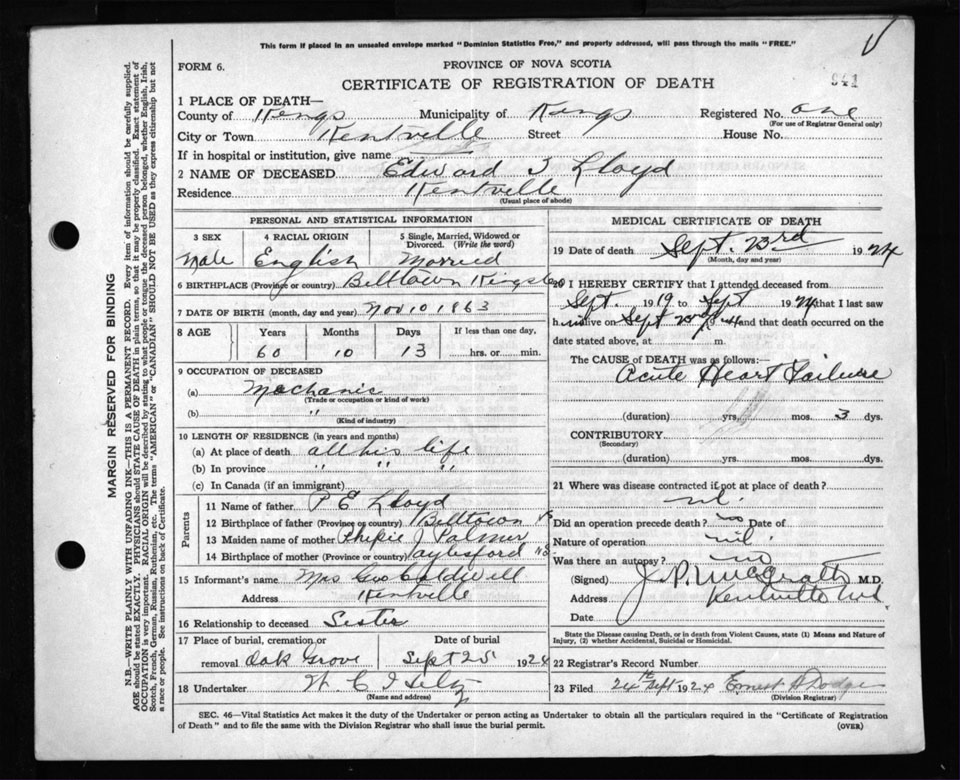 This form if placed in an unsealed envelope marked "Dominion Statistics Free," and properly addressed, will pass through the mails "FREE."
FORM 6.
PROVINCE OF NOVA SCOTIA
CERTIFICATE OF REGISTRATION OF DEATH
941
1 PLACE OF DEATH—
County of Kings Municipality of Kings Registered No. one
(For use of Registrar General only)
City or Town Kentville Street House No.
If in hospital or institution, give name
2 NAME OF DECEASED Edward J Lloyd
Residence Kentville
(Usual place of abode)
PERSONAL AND STATISTICAL INFORMATION
3 SEX 4 RACIAL ORIGIN 5 Single, Married, Widowed or Divorced. (Write the word)
Male English Married
6 BIRTHPLACE (Province or country) Billtown Kings Co
7 DATE OF BIRTH (month, day and year) Nov 10 1863
8 AGE Years Months Days If less than one day,
60 10 13 hrs. or min.
9 OCCUPATION OF DECEASED
(a) Mechanic
(Trade or occupation or kind of work)
(b) "
(Kind of industry)
10 LENGTH OF RESIDENCE (in years and months)
(a) At place of death all his life
(b) In province " " "
(c) In Canada (if an immigrant)
Parents
11 Name of father P E Lloyd
12 Birthplace of father (Province or country) Billtown
13 Maiden name of mother J Palmer
14 Birthplace of mother (Province or country) Aylesford NS
15 Informant's name Mrs Geo Caldwell
Address Kentville
16 Relationship to deceased Sister
17 Place of burial, cremation or removal Oak Grove Date of burial Sept 25 1924
18 Undertaker W C
(Name and address)
MEDICAL CERTIFICATE OF DEATH
19 Date of death Sept. 23rd 1924
(Month, day and year)
20 I HEREBY CERTIFY that I attended deceased from
Sept. 19 19 to Sept 1924 that I last saw
him alive on Sept 23rd 1924 and that death occurred on the
date stated above, at m.
The CAUSE of DEATH was as follows:
Acute Heart Failure
(duration) yrs. mos. 3 dys.
CONTRIBUTORY
(Secondary)
(duration) yrs. mos. dys.
21 Where was disease contracted if not at place of death?
nil.
Did an operation precede death? no Date of
Nature of operation nil.
Was there an autopsy? no
(Signed) J. P. McGrath M.D.
Address Kentville N.S.
Date
State the Disease causing Death, or in death from Violent Causes, state (1) Means and Nature of Injury, (2) whether Accidental, Suicidal or Homicidal.
22 Registrar's Record Number
23 Filed 24th Sept 1924 Ernest Dodge
(Division Registrar)
SEC. 46—Vital Statistics Act makes it the duty of the Undertaker or person acting as Undertaker to obtain all the particulars required in the "Certificate of Registration
of Death" and to file the same with the Division Registrar who shall issue the burial permit.
(OVER)
MARGIN RESERVED FOR BINDING
N.B.—WRITE PLAINLY WITH UNFADING INK—THIS IS A PERMANENT RECORD. Every item of information should be carefully supplied.
AGE should be stated EXACTLY. PHYSICIANS should STATE CAUSE OF DEATH in plain terms, so that it may be properly classified. Exact statement of
OCCUPATION is very important. RACIAL ORIGIN will be described by stating to what people or tongue the deceased person belonged, whether English, Irish,
Scotch, French, German, Russian, Ruthenian, etc. The terms "AMERICAN" or "CANADIAN" SHOULD NOT BE USED as they express citizenship but not
a race or people. See instructions on back of Certificate.